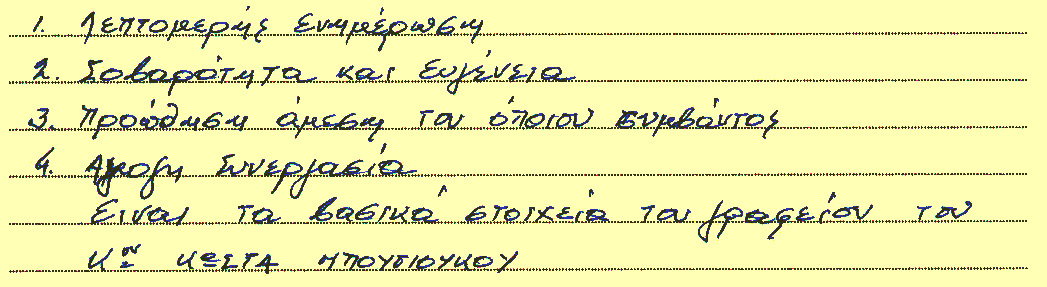 1. Λεπτομερής ενημέρωση
2. Σοβαρότητα και ευγένεια
3. Προώθηση άμεση του όποιου συμβάντος
4. Άψογη Συνεργασία
Είναι τα βασικά στοιχεία του γραφείου του
Κου ΚΩΣΤΑ ΜΠΟΥΤΙΟΥΚΟΥ